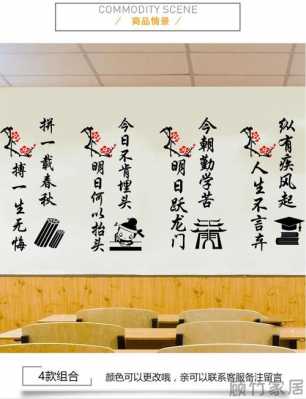 COMMODITY SCENE
商品情景
纵有疾风起
人生不言弃
今朝勤学苦
明日跃龙门
今日不肯埋头
明日何以抬头
拼一载春秋
搏一生无悔
4款组合
颜色可以更改哦，亲可以联系客服备注留言
顾竹家居